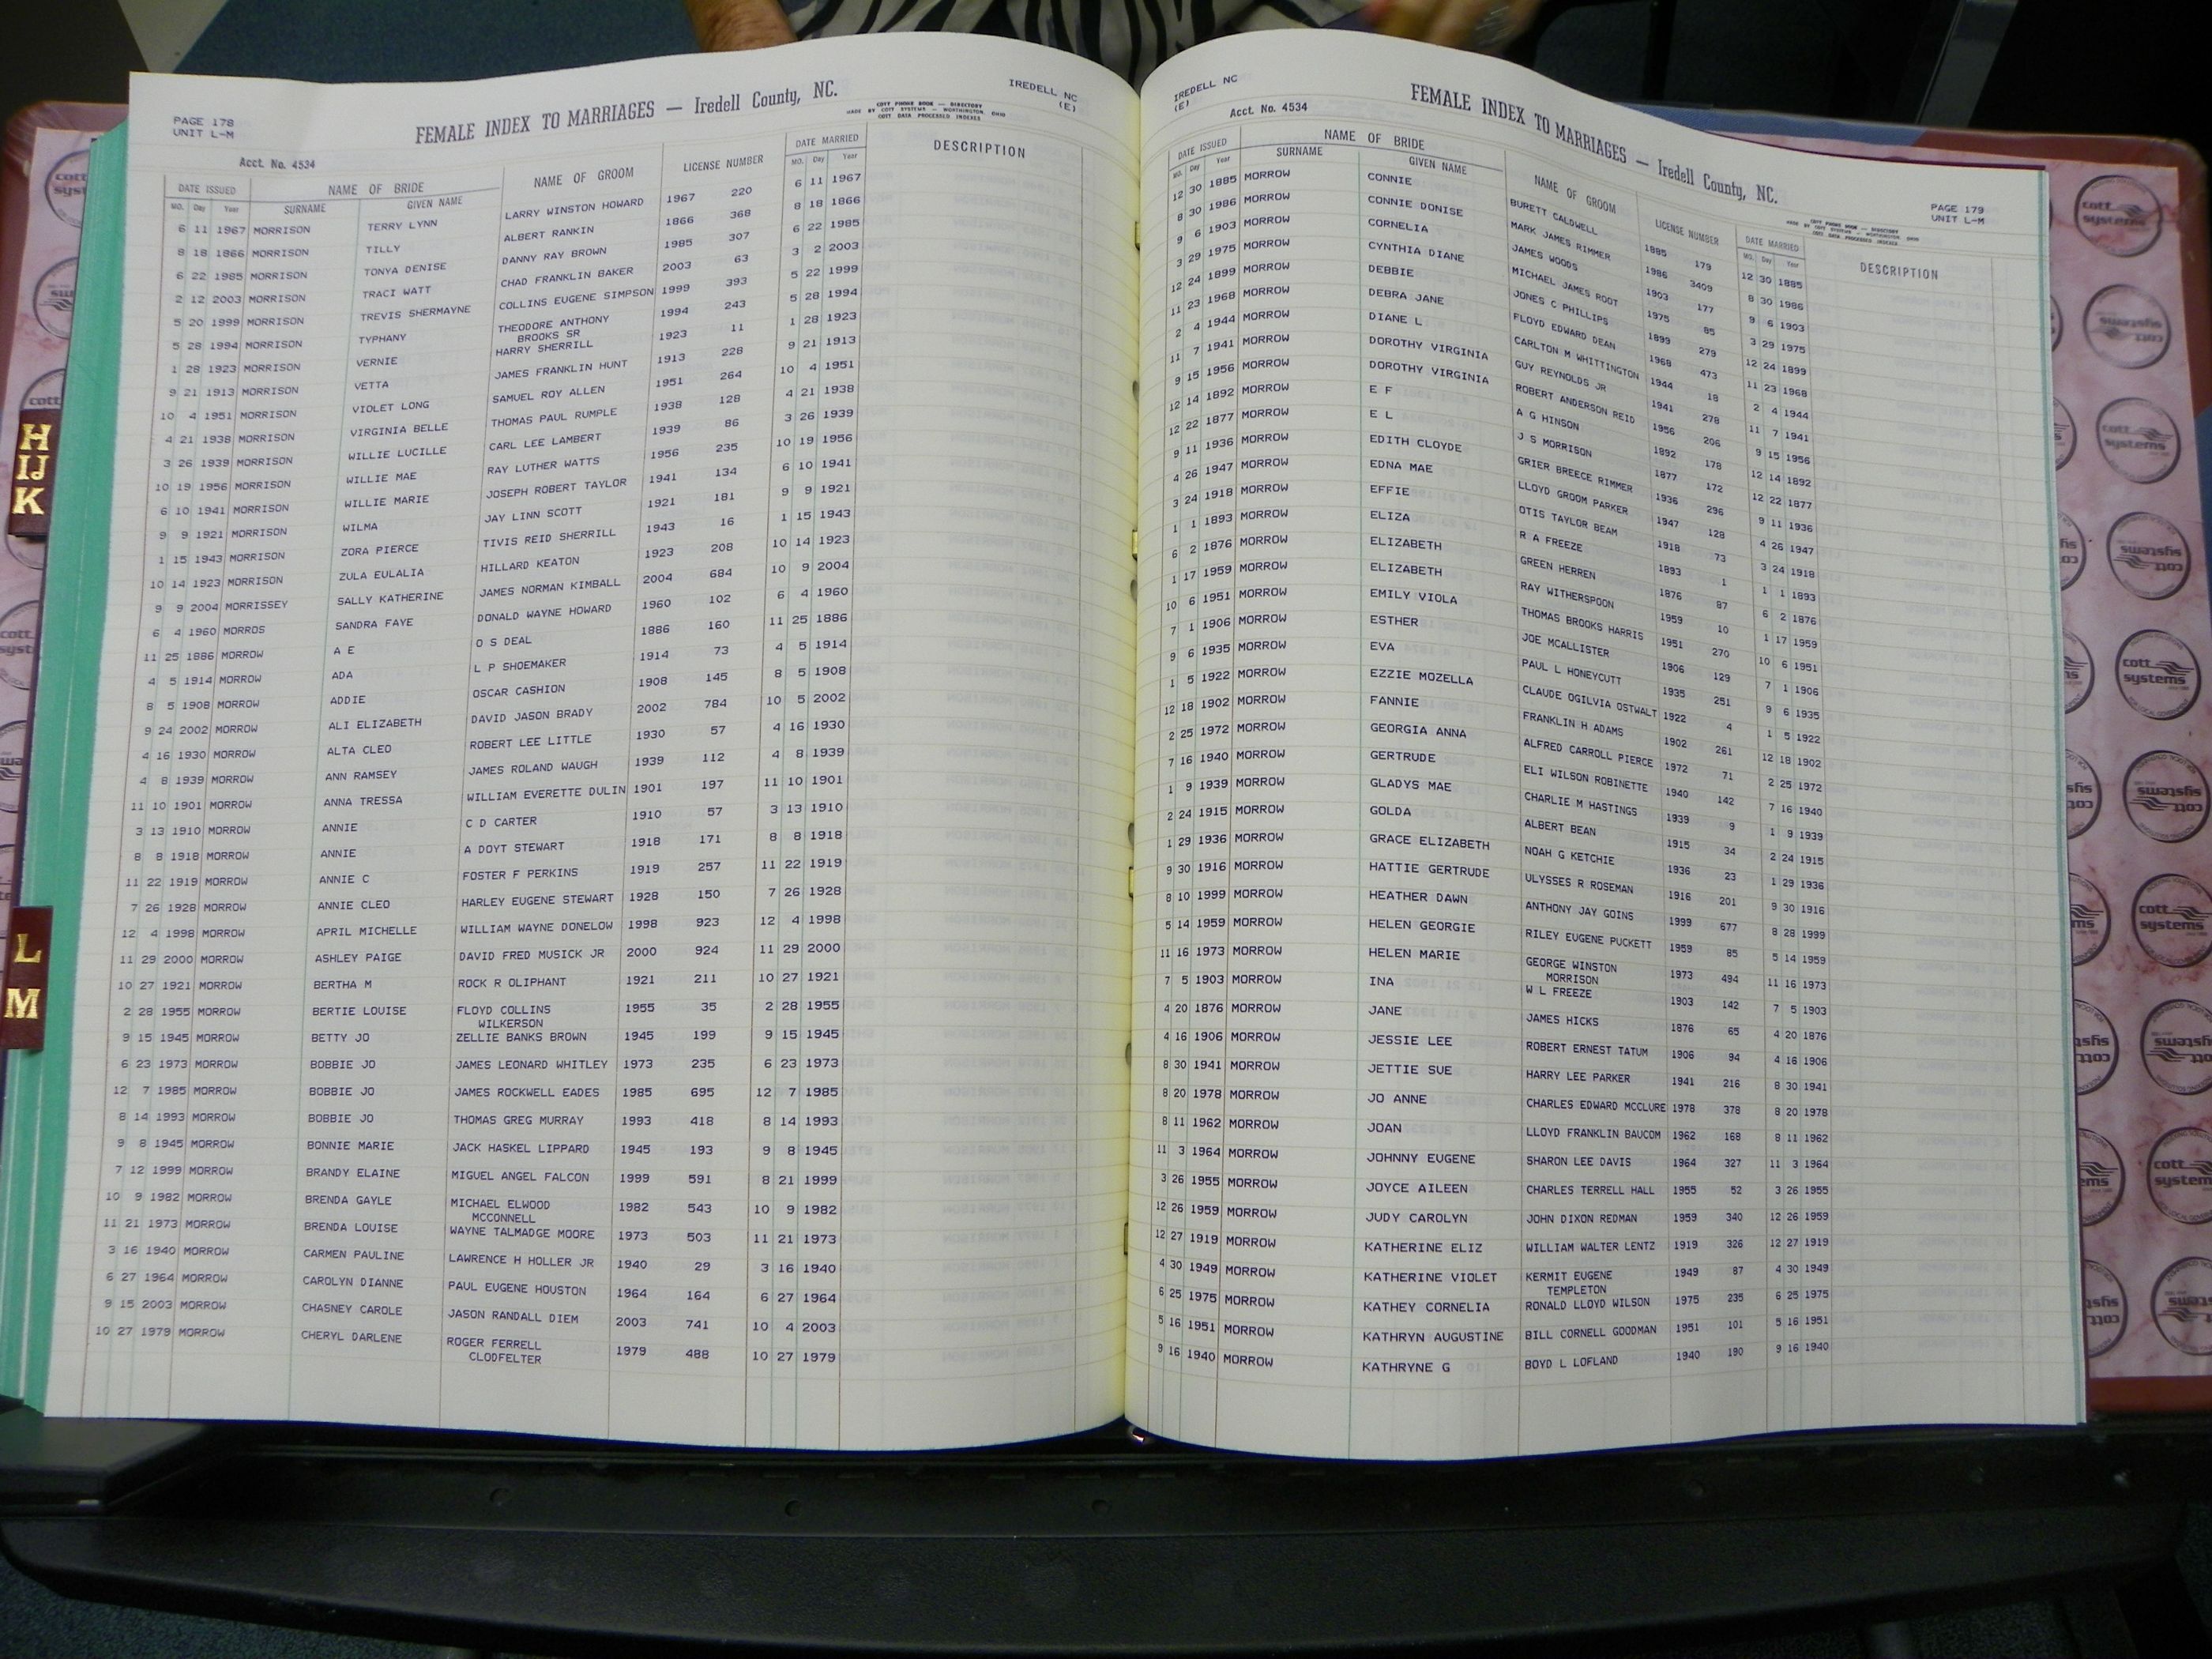 PAGE 178
UNIT L-M
FEMALE INDEX TO MARRIAGES — Iredell County, NC.
IREDELL NC
(E)
COTT PHONE BOOK — DIRECTORY
MADE BY COTT SYSTEMS — WORTHINGTON, OHIO
COTT DATA PROCESSED INDEXES
Acct. No. 4534
DATE ISSUED NAME OF BRIDE NAME OF GROOM LICENSE NUMBER DATE MARRIED DESCRIPTION
MO. Day Year SURNAME GIVEN NAME MO. Day Year
6 11 1967 MORRISON TERRY LYNN LARRY WINSTON HOWARD 1967 220 6 11 1967
8 18 1866 MORRISON TILLY ALBERT RANKIN 1866 368 8 18 1866
6 22 1985 MORRISON TONYA DENISE DANNY RAY BROWN 1985 307 6 22 1985
2 12 2003 MORRISON TRACI WATT CHAD FRANKLIN BAKER 2003 63 3 2 2003
5 20 1999 MORRISON TREVIS SHERMAYNE COLLINS EUGENE SIMPSON 1999 393 5 22 1999
5 28 1994 MORRISON TYPHANY THEODORE ANTHONY 1994 243 5 28 1994
BROOKS SR
1 28 1923 MORRISON VERNIE HARRY SHERRILL 1923 11 1 28 1923
9 21 1913 MORRISON VETTA JAMES FRANKLIN HUNT 1913 228 9 21 1913
10 4 1951 MORRISON VIOLET LONG SAMUEL ROY ALLEN 1951 264 10 4 1951
4 21 1938 MORRISON VIRGINIA BELLE THOMAS PAUL RUMPLE 1938 128 4 21 1938
3 26 1939 MORRISON WILLIE LUCILLE CARL LEE LAMBERT 1939 86 3 26 1939
10 19 1956 MORRISON WILLIE MAE RAY LUTHER WATTS 1956 235 10 19 1956
6 10 1941 MORRISON WILLIE MARIE JOSEPH ROBERT TAYLOR 1941 134 6 10 1941
9 9 1921 MORRISON WILMA JAY LINN SCOTT 1921 181 9 9 1921
1 15 1943 MORRISON ZORA PIERCE TIVIS REID SHERRILL 1943 16 1 15 1943
10 14 1923 MORRISON ZULA EULALIA HILLARD KEATON 1923 208 10 14 1923
9 9 2004 MORRISSEY SALLY KATHERINE JAMES NORMAN KIMBALL 2004 684 10 9 2004
6 4 1960 MORROS SANDRA FAYE DONALD WAYNE HOWARD 1960 102 6 4 1960
11 25 1886 MORROW A E O S DEAL 1886 160 11 25 1886
4 5 1914 MORROW ADA L P SHOEMAKER 1914 73 4 5 1914
8 5 1908 MORROW ADDIE OSCAR CASHION 1908 145 8 5 1908
9 24 2002 MORROW ALI ELIZABETH DAVID JASON BRADY 2002 784 10 5 2002
4 16 1930 MORROW ALTA CLEO ROBERT LEE LITTLE 1930 57 4 16 1930
4 8 1939 MORROW ANN RAMSEY JAMES ROLAND WAUGH 1939 112 4 8 1939
11 10 1901 MORROW ANNA TRESSA WILLIAM EVERETTE DULIN 1901 197 11 10 1901
3 13 1910 MORROW ANNIE C D CARTER 1910 57 3 13 1910
8 8 1918 MORROW ANNIE A DOYT STEWART 1918 171 8 8 1918
11 22 1919 MORROW ANNIE C FOSTER F PERKINS 1919 257 11 22 1919
7 26 1928 MORROW ANNIE CLEO HARLEY EUGENE STEWART 1928 150 7 26 1928
12 4 1998 MORROW APRIL MICHELLE WILLIAM WAYNE DONELOW 1998 923 12 4 1998
11 29 2000 MORROW ASHLEY PAIGE DAVID FRED MUSICK JR 2000 924 11 29 2000
10 27 1921 MORROW BERTHA M ROCK R OLIPHANT 1921 211 10 27 1921
2 28 1955 MORROW BERTIE LOUISE FLOYD COLLINS 1955 35 2 28 1955
WILKERSON
9 15 1945 MORROW BETTY JO ZELLIE BANKS BROWN 1945 199 9 15 1945
6 23 1973 MORROW BOBBIE JO JAMES LEONARD WHITLEY 1973 235 6 23 1973
12 7 1985 MORROW BOBBIE JO JAMES ROCKWELL EADES 1985 695 12 7 1985
8 14 1993 MORROW BOBBIE JO THOMAS GREG MURRAY 1993 418 8 14 1993
9 8 1945 MORROW BONNIE MARIE JACK HASKEL LIPPARD 1945 193 9 8 1945
7 12 1999 MORROW BRANDY ELAINE MIGUEL ANGEL FALCON 1999 591 8 21 1999
10 9 1982 MORROW BRENDA GAYLE MICHAEL ELWOOD 1982 543 10 9 1982
MCCONNELL
11 21 1973 MORROW BRENDA LOUISE WAYNE TALMADGE MOORE 1973 503 11 21 1973
3 16 1940 MORROW CARMEN PAULINE LAWRENCE H HOLLER JR 1940 29 3 16 1940
6 27 1964 MORROW CAROLYN DIANNE PAUL EUGENE HOUSTON 1964 164 6 27 1964
9 15 2003 MORROW CHASNEY CAROLE JASON RANDALL DIEM 2003 741 10 4 2003
10 27 1979 MORROW CHERYL DARLENE ROGER FERRELL 1979 488 10 27 1979
CLODFELTER
IREDELL NC
(E)
FEMALE INDEX TO MARRIAGES — Iredell County, NC.
PAGE 179
UNIT L-M
Acct. No. 4534
DATE ISSUED NAME OF BRIDE NAME OF GROOM LICENSE NUMBER DATE MARRIED DESCRIPTION
MO. Day Year SURNAME GIVEN NAME MO. Day Year
12 30 1885 MORROW CONNIE BURETT CALDWELL 1885 179 12 30 1885
8 30 1986 MORROW CONNIE DONISE MARK JAMES RIMMER 1986 3409 8 30 1986
9 6 1903 MORROW CORNELIA JAMES WOODS 1903 177 9 6 1903
3 29 1975 MORROW CYNTHIA DIANE MICHAEL JAMES ROOT 1975 85 3 29 1975
12 24 1899 MORROW DEBBIE JONES C PHILLIPS 1899 279 12 24 1899
11 23 1968 MORROW DEBRA JANE FLOYD EDWARD DEAN 1968 473 11 23 1968
2 4 1944 MORROW DIANE L CARLTON M WHITTINGTON 1944 18 2 4 1944
11 7 1941 MORROW DOROTHY VIRGINIA GUY REYNOLDS JR 1941 278 11 7 1941
9 15 1956 MORROW DOROTHY VIRGINIA ROBERT ANDERSON REID 1956 206 9 15 1956
12 14 1892 MORROW E F A G HINSON 1892 178 12 14 1892
12 22 1877 MORROW E L J S MORRISON 1877 172 12 22 1877
9 11 1936 MORROW EDITH CLOYDE GRIER BREECE RIMMER 1936 296 9 11 1936
4 26 1947 MORROW EDNA MAE LLOYD GROOM PARKER 1947 128 4 26 1947
3 24 1918 MORROW EFFIE OTIS TAYLOR BEAM 1918 73 3 24 1918
1 1 1893 MORROW ELIZA R A FREEZE 1893 1 1 1 1893
6 2 1876 MORROW ELIZABETH GREEN HERREN 1876 87 6 2 1876
1 17 1959 MORROW ELIZABETH RAY WITHERSPOON 1959 10 1 17 1959
10 6 1951 MORROW EMILY VIOLA THOMAS BROOKS HARRIS 1951 270 10 6 1951
7 1 1906 MORROW ESTHER JOE MCALLISTER 1906 129 7 1 1906
9 6 1935 MORROW EVA PAUL L HONEYCUTT 1935 251 9 6 1935
1 5 1922 MORROW EZZIE MOZELLA CLAUDE OGILVIA OSTWALT 1922 4 1 5 1922
12 18 1902 MORROW FANNIE FRANKLIN H ADAMS 1902 261 12 18 1902
2 25 1972 MORROW GEORGIA ANNA ALFRED CARROLL PIERCE 1972 71 2 25 1972
7 16 1940 MORROW GERTRUDE ELI WILSON ROBINETTE 1940 142 7 16 1940
1 9 1939 MORROW GLADYS MAE CHARLIE M HASTINGS 1939 9 1 9 1939
2 24 1915 MORROW GOLDA ALBERT BEAN 1915 34 2 24 1915
1 29 1936 MORROW GRACE ELIZABETH NOAH G KETCHIE 1936 23 1 29 1936
9 30 1916 MORROW HATTIE GERTRUDE ULYSSES R ROSEMAN 1916 201 9 30 1916
8 10 1999 MORROW HEATHER DAWN ANTHONY JAY GOINS 1999 677 8 28 1999
5 14 1959 MORROW HELEN GEORGIE RILEY EUGENE PUCKETT 1959 85 5 14 1959
11 16 1973 MORROW HELEN MARIE GEORGE WINSTON 1973 494 11 16 1973
MORRISON
7 5 1903 MORROW INA W L FREEZE 1903 142 7 5 1903
4 20 1876 MORROW JANE JAMES HICKS 1876 65 4 20 1876
4 16 1906 MORROW JESSIE LEE ROBERT ERNEST TATUM 1906 94 4 16 1906
8 30 1941 MORROW JETTIE SUE HARRY LEE PARKER 1941 216 8 30 1941
8 20 1978 MORROW JO ANNE CHARLES EDWARD MCCLURE 1978 378 8 20 1978
8 11 1962 MORROW JOAN LLOYD FRANKLIN BAUCOM 1962 168 8 11 1962
11 3 1964 MORROW JOHNNY EUGENE SHARON LEE DAVIS 1964 327 11 3 1964
3 26 1955 MORROW JOYCE AILEEN CHARLES TERRELL HALL 1955 52 3 26 1955
12 26 1959 MORROW JUDY CAROLYN JOHN DIXON REDMAN 1959 340 12 26 1959
12 27 1919 MORROW KATHERINE ELIZ WILLIAM WALTER LENTZ 1919 326 12 27 1919
4 30 1949 MORROW KATHERINE VIOLET KERMIT EUGENE 1949 87 4 30 1949
TEMPLETON
6 25 1975 MORROW KATHEY CORNELIA RONALD LLOYD WILSON 1975 235 6 25 1975
5 16 1951 MORROW KATHRYN AUGUSTINE BILL CORNELL GOODMAN 1951 101 5 16 1951
9 16 1940 MORROW KATHRYNE G BOYD L LOFLAND 1940 190 9 16 1940
H
IJ
K
L
M
cott systems